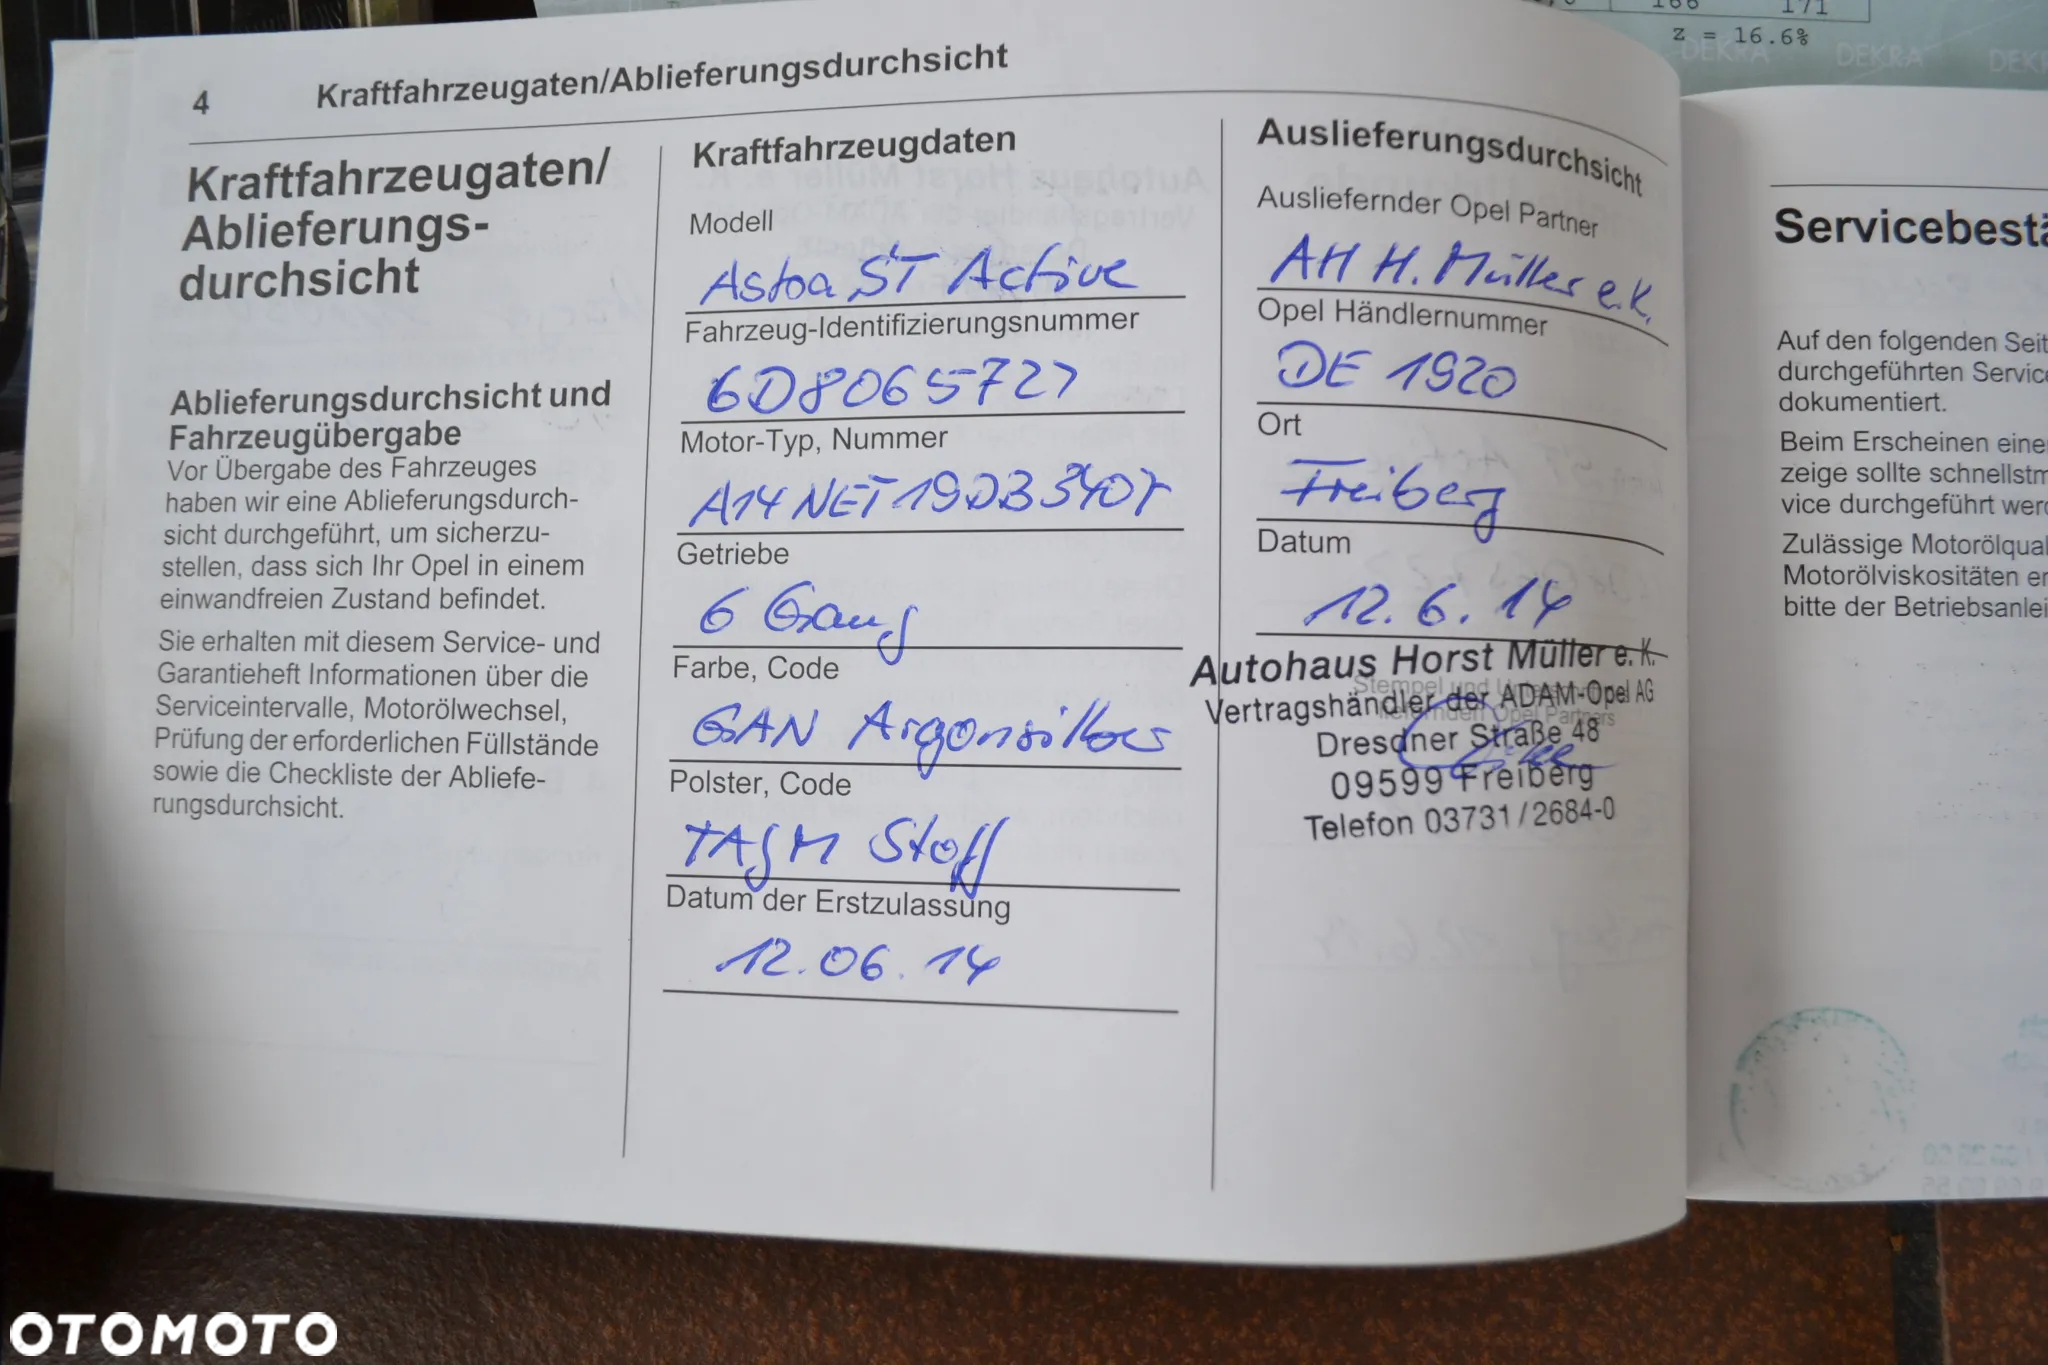 166 171
z = 16.6%
DEKRA DEKRA
4 Kraftfahrzeugaten/Ablieferungsdurchsicht
Kraftfahrzeugaten/
Ablieferungs-
durchsicht
Ablieferungsdurchsicht und
Fahrzeugübergabe
Vor Übergabe des Fahrzeuges
haben wir eine Ablieferungsdurch-
sicht durchgeführt, um sicherzu-
stellen, dass sich Ihr Opel in einem
einwandfreien Zustand befindet.
Sie erhalten mit diesem Service- und
Garantieheft Informationen über die
Serviceintervalle, Motorölwechsel,
Prüfung der erforderlichen Füllstände
sowie die Checkliste der Abliefe-
rungsdurchsicht.
Kraftfahrzeugdaten
Modell
Astra ST Active
Fahrzeug-Identifizierungsnummer
6D8065727
Motor-Typ, Nummer
A14NET
Getriebe
6 Gang
Farbe, Code
GAN Argonsilber
Polster, Code
TAGM Stoff
Datum der Erstzulassung
12.06.14
Auslieferungsdurchsicht
Ausliefernder Opel Partner
AH H. Müller e.K.
Opel Händlernummer
DE 1920
Ort
Freiberg
Datum
12.6.14
Autohaus Horst Müller e. K.
Stempel und
Vertragshändler der ADAM-Opel AG
Opel Partners
Dresdner Straße 48
09599 Freiberg
Telefon 03731/2684-0
Servicebestä
Auf den folgenden Seit
durchgeführten Service
dokumentiert.
Beim Erscheinen einer
zeige sollte schnellstm
vice durchgeführt werd
Zulässige Motorölqual
Motorölviskositäten er
bitte der Betriebsanlei
OTOMOTO